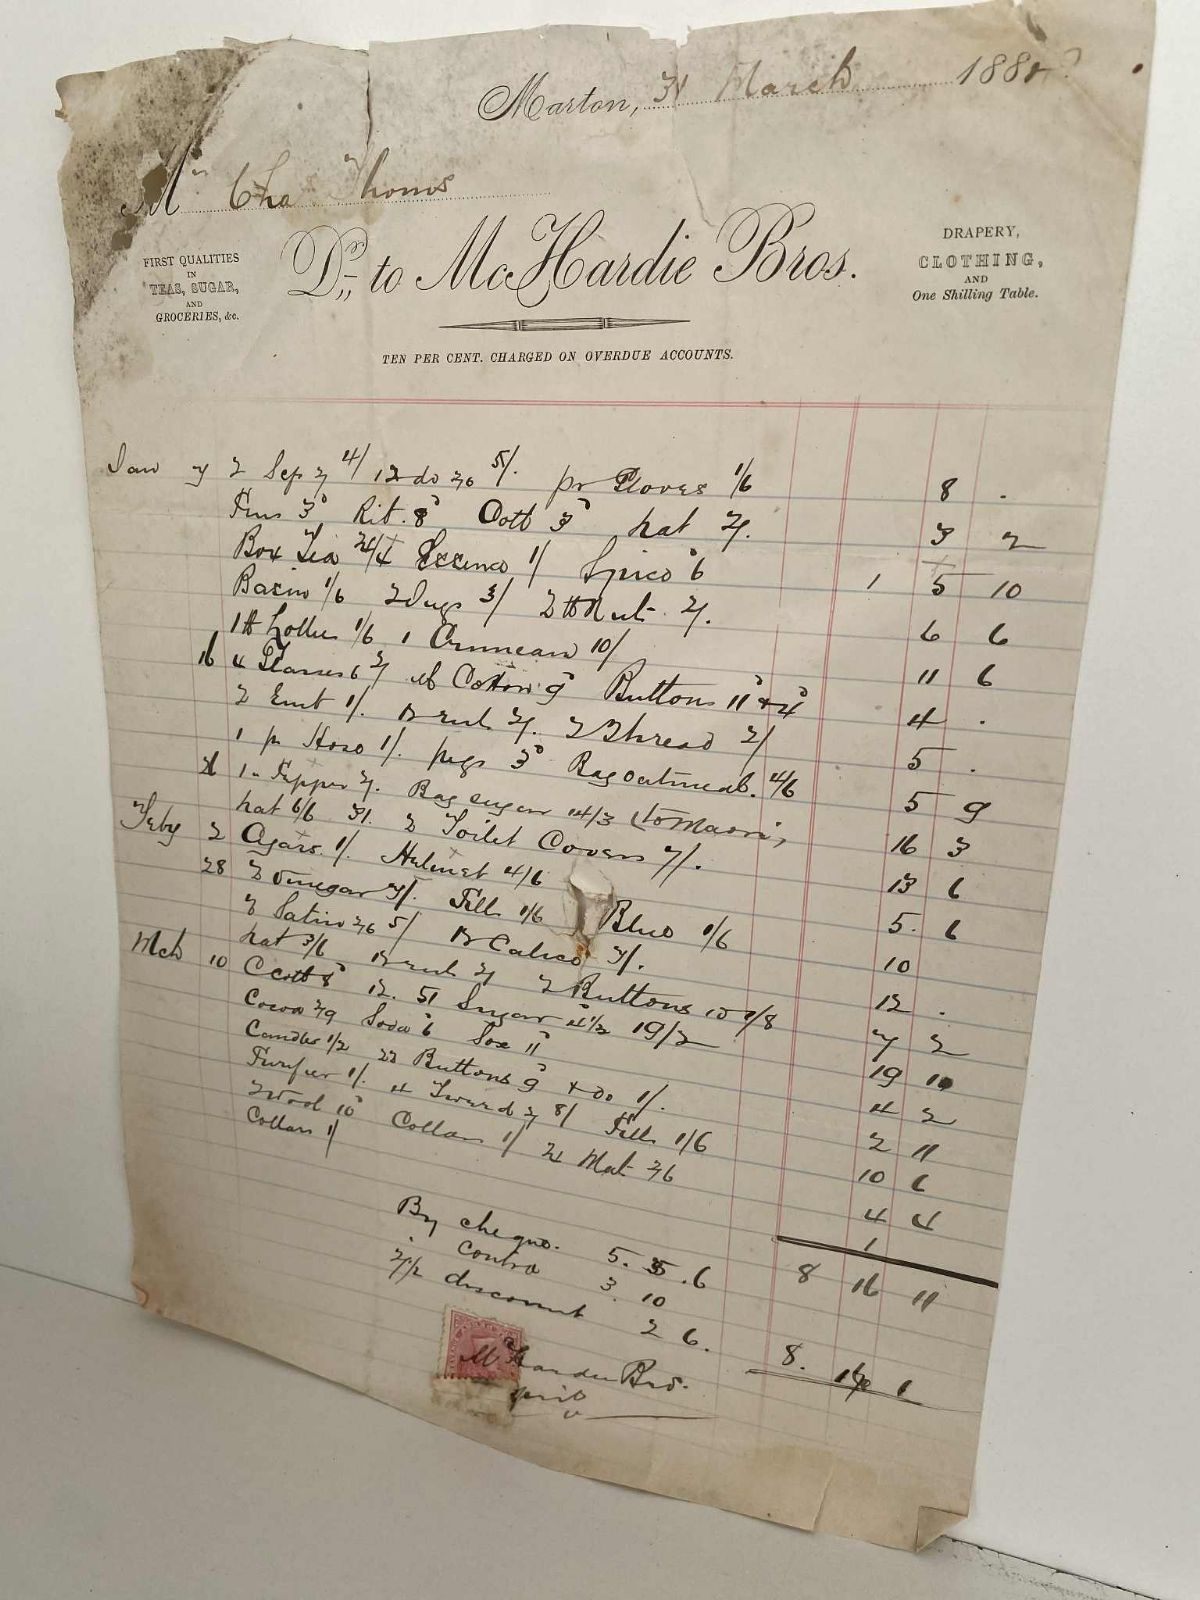 Marton, 31 March 188
Mr Chas Thomas
FIRST QUALITIES
IN
TEAS, SUGAR,
AND
GROCERIES, &c.
Dr. to McHardie Bros.
DRAPERY,
CLOTHING,
AND
One Shilling Table.
TEN PER CENT. CHARGED ON OVERDUE ACCOUNTS.
Jan 7 2 4/ 12 do 5/. pr Gloves 1/6 8 .
3d Rib. 8d Cott 3d hat 2/. 3 2
Box Tea Essence 1/ Spice 6 1 5 10
Basin 1/6 2 Jugs 3/ 2 lb Nut 2/. 6 6
1 lb Lollies 1/6 1 10/ 11 6
16 4 Glasses 6 Cotton 9d Buttons 11d & 4d 4 .
2 1/. 2/. 2 Thread 2/ 5 .
1 pr Hose 1/. pegs 3d Bag oatmeal. 4/6 5 9
21 1 Pepper 2/. Bag sugar 14/3 (to Maori, 16 3
hat 6/6 31. 2 Toilet Covers 7/. 13 6
Feby 2 1/. Helmet 4/6 5. 6
28 2 Vinegar 3/. Fills 1/6 Blue 1/6 10
2 Satin 5/ Calico 12 .
hat 3/6 2 Buttons 10 7 2
Mch 10 C cott 8d 12. 51 Sugar 4 1/2 19/2 19 10
Cocoa 2/9 Soda 6 Sox 11d 4 2
Candles 1/2 22 Buttons 9d & do 1/. 2 11
1/. 4 Tweed 8/ Fills 1/6 10 6
2 Wool 10d Collars 1/ 2 Mat 2/6 4 4
Collars 1/ 1
8 16 11
By cheque. 5. 5 .6
" contra 3. 10
discount 2 6.
8. 1
McHardie Bros.